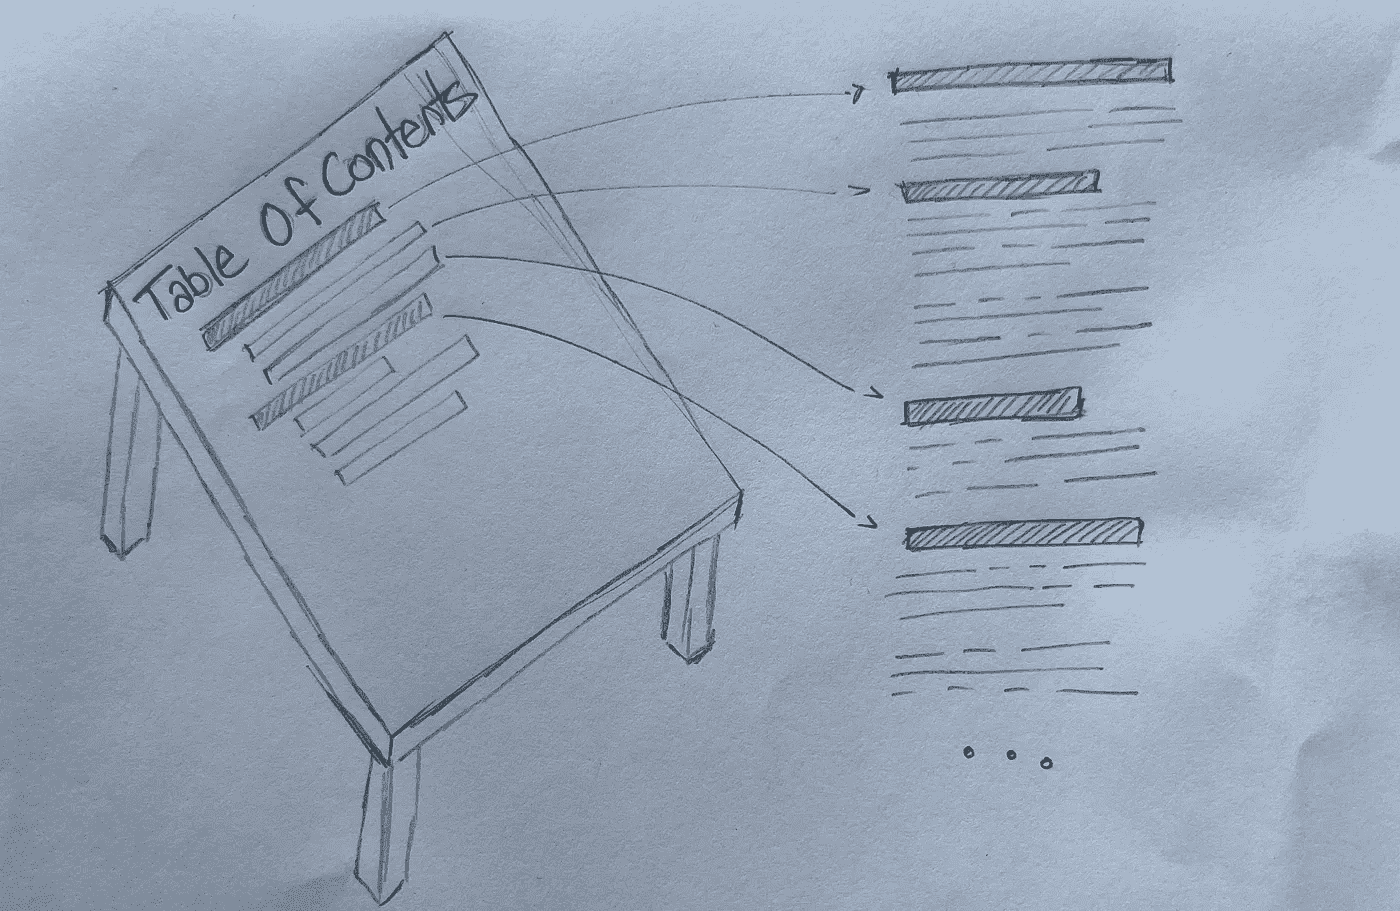 Table Of Contents